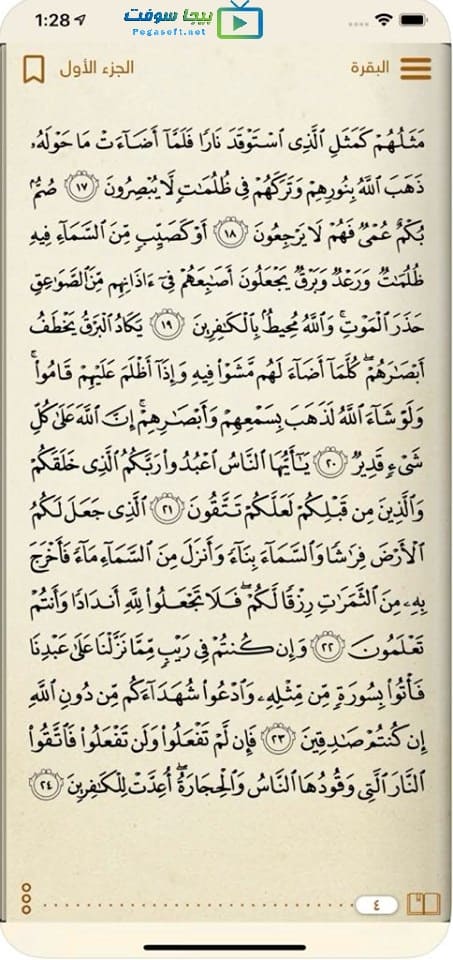 1:28
بيجا سوفت
Pegasoft.net
البقرة
الجزء الأول
مَثَلُهُمْ كَمَثَلِ الَّذِى اسْتَوْقَدَ نَارًا فَلَمَّآ أَضَآءَتْ مَا حَوْلَهُۥ
ذَهَبَ اللَّهُ بِنُورِهِمْ وَتَرَكَهُمْ فِى ظُلُمَٰتٍ لَّا يُبْصِرُونَ ١٧ صُمٌّۢ
بُكْمٌ عُمْىٌ فَهُمْ لَا يَرْجِعُونَ ١٨ أَوْ كَصَيِّبٍ مِّنَ السَّمَآءِ فِيهِ
ظُلُمَٰتٌ وَرَعْدٌ وَبَرْقٌ يَجْعَلُونَ أَصَٰبِعَهُمْ فِىٓ ءَاذَانِهِم مِّنَ الصَّوَٰعِقِ
حَذَرَ الْمَوْتِ ۚ وَاللَّهُ مُحِيطٌۢ بِالْكَٰفِرِينَ ١٩ يَكَادُ الْبَرْقُ يَخْطَفُ
أَبْصَٰرَهُمْ ۖ كُلَّمَآ أَضَآءَ لَهُم مَّشَوْا۟ فِيهِ وَإِذَآ أَظْلَمَ عَلَيْهِمْ قَامُوا۟ ۚ
وَلَوْ شَآءَ اللَّهُ لَذَهَبَ بِسَمْعِهِمْ وَأَبْصَٰرِهِمْ ۚ إِنَّ اللَّهَ عَلَىٰ كُلِّ
شَىْءٍ قَدِيرٌ ٢٠ يَٰٓأَيُّهَا النَّاسُ اعْبُدُوا۟ رَبَّكُمُ الَّذِى خَلَقَكُمْ
وَالَّذِينَ مِن قَبْلِكُمْ لَعَلَّكُمْ تَتَّقُونَ ٢١ الَّذِى جَعَلَ لَكُمُ
الْأَرْضَ فِرَٰشًا وَالسَّمَآءَ بِنَآءً وَأَنزَلَ مِنَ السَّمَآءِ مَآءً فَأَخْرَجَ
بِهِۦ مِنَ الثَّمَرَٰتِ رِزْقًا لَّكُمْ ۖ فَلَا تَجْعَلُوا۟ لِلَّهِ أَندَادًا وَأَنتُمْ
تَعْلَمُونَ ٢٢ وَإِن كُنتُمْ فِى رَيْبٍ مِّمَّا نَزَّلْنَا عَلَىٰ عَبْدِنَا
فَأْتُوا۟ بِسُورَةٍ مِّن مِّثْلِهِۦ وَادْعُوا۟ شُهَدَآءَكُم مِّن دُونِ اللَّهِ
إِن كُنتُمْ صَٰدِقِينَ ٢٣ فَإِن لَّمْ تَفْعَلُوا۟ وَلَن تَفْعَلُوا۟ فَاتَّقُوا۟
النَّارَ الَّتِى وَقُودُهَا النَّاسُ وَالْحِجَارَةُ ۖ أُعِدَّتْ لِلْكَٰفِرِينَ ٢٤
٤